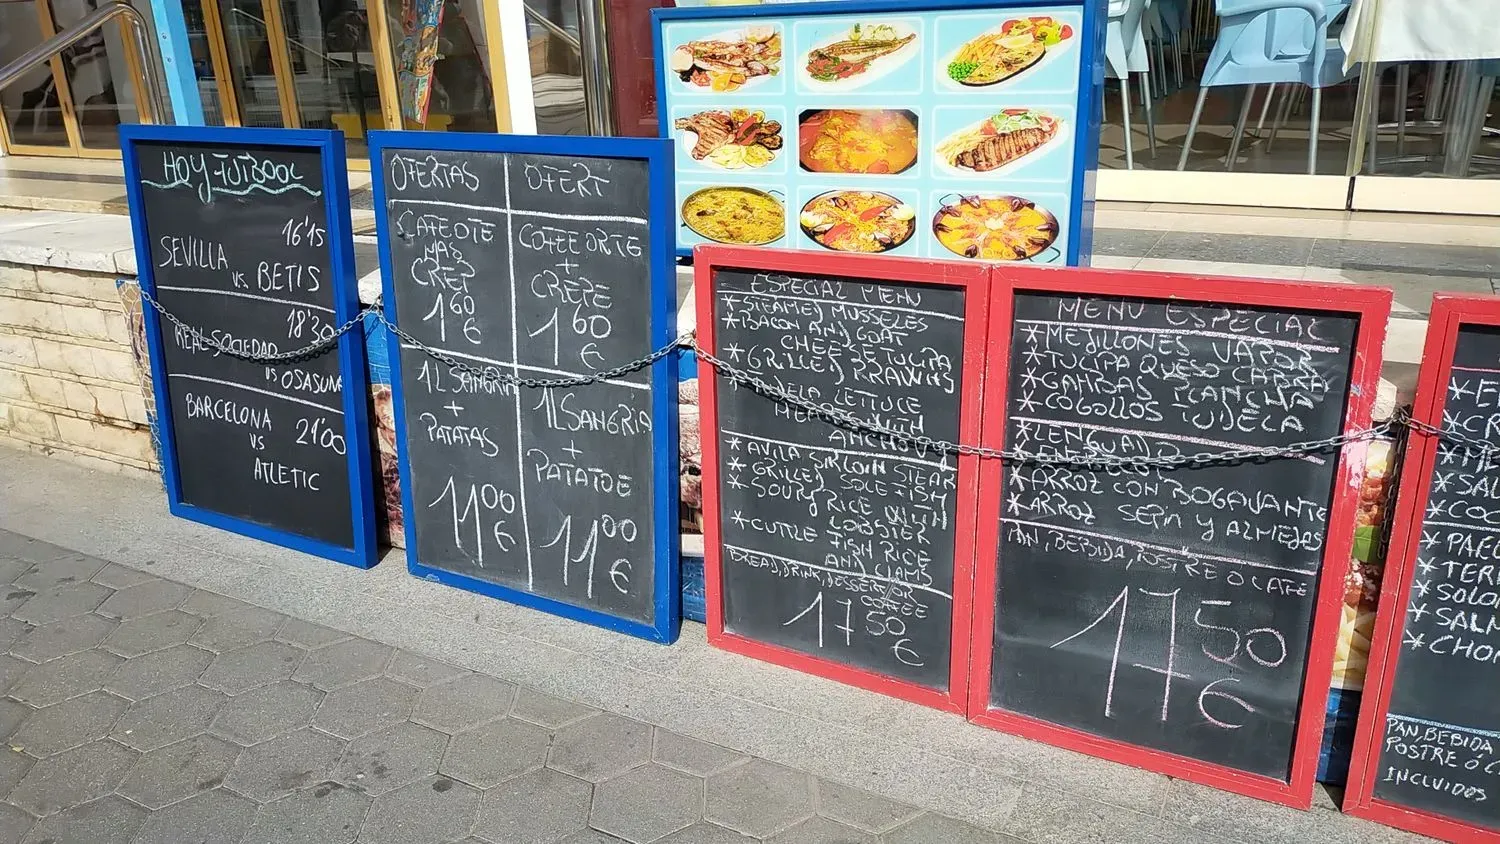 HOY FUTBOOL
16'15
SEVILLA
vs. BETIS
18'30
REAL SOCIEDAD
vs OSASUNA
BARCELONA
vs 21'00
ATLETIC
OFERTAS
CAFE O TE
MAS
CREP
1'60
€
1L SANGRIA
+
PATATAS
11'00
€
OFERT
COFEE OR TE
+
CREPE
1'60
€
1L SANGRIA
+
PATATOE
11'00
€
ESPECIAL MENU
*STEAMED MUSSELES
*BACON AND GOAT
CHEESE TULIPA
*GRILLED PRAWNS
LETTUCE
WITH
ANCHOVY
*AVILA SIRLOIN STEAK
*GRILLED SOLE FISH
*SOUPY RICE WITH
LOBSTER
*CUTTLE FISH RICE
AND CLAMS
BREAD, DRINK, DESSERT OR
COFFEE
17'50
€
MENU ESPECIAL
*MEJILLONES VAPOR
*TULIPA QUESO CABRA
*GAMBAS PLANCHA
*COGOLLOS TUDELA
*LENGUADO
*ENTRECOT
*ARROZ CON BOGAVANTE
*ARROZ SEPIA Y ALMEJAS
PAN, BEBIDA, POSTRE O CAFE
17'50
€
*E
*CR
*ME
*SAL
*COG
*PAEL
*TER
*SOLO
*SALM
*CHO
PAN, BEBIDA
POSTRE Ó C
INCLUIDOS